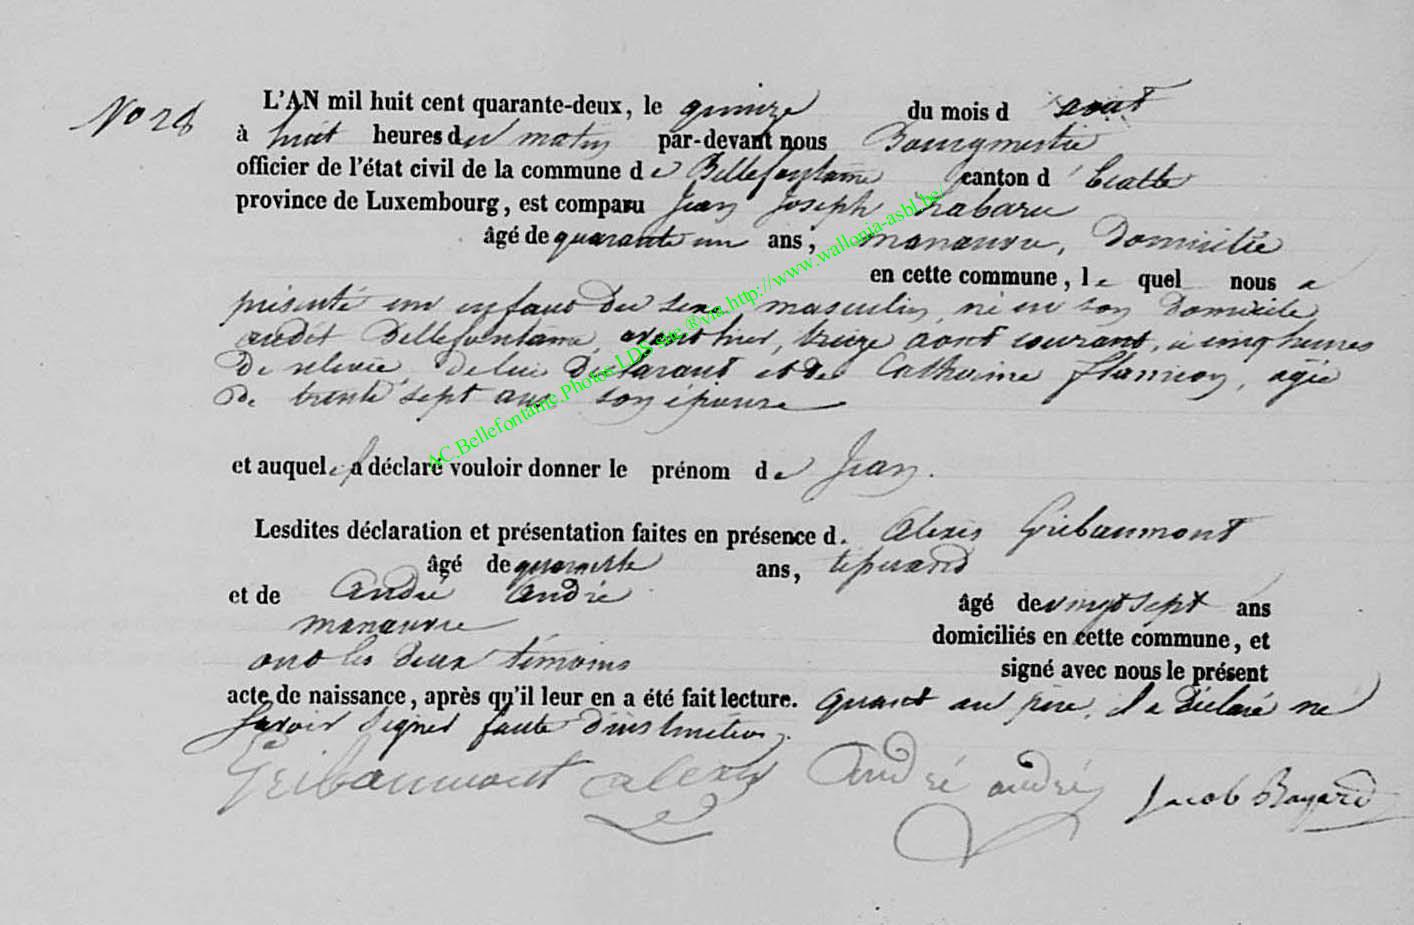 No 28
L'AN mil huit cent quarante-deux, le quinze du mois d août
à huit heures du matin par-devant nous Bourgmestre
officier de l'état civil de la commune de Bellefontaine canton d'Etalle
province de Luxembourg, est comparu Jean Joseph Habaru
âgé de quarante un ans, manœuvre, domicilié
en cette commune, lequel nous a
présenté un enfant du sexe masculin, né en son domicile
audit Bellefontaine, avant hier, treize août courant, à cinq heures
de relevée, de lui déclarant et de Catherine, agée
de trente sept ans son épouse
et auquel a déclaré vouloir donner le prénom de Jean.
Lesdites déclaration et présentation faites en présence d. Alexis Gribaumont
âgé de quarante ans, tisserand
et de André André âgé de vingt sept ans
manœuvre domiciliés en cette commune, et
ont les deux témoins signé avec nous le présent
acte de naissance, après qu'il leur en a été fait lecture. quant au père, il a déclaré ne
savoir signer faute d'instruction.
Gribaumont alexis André andré Jacob Bayard
AC.Bellefontaine.Photos LDS site ® via http://www.wallonia-asbl.be/